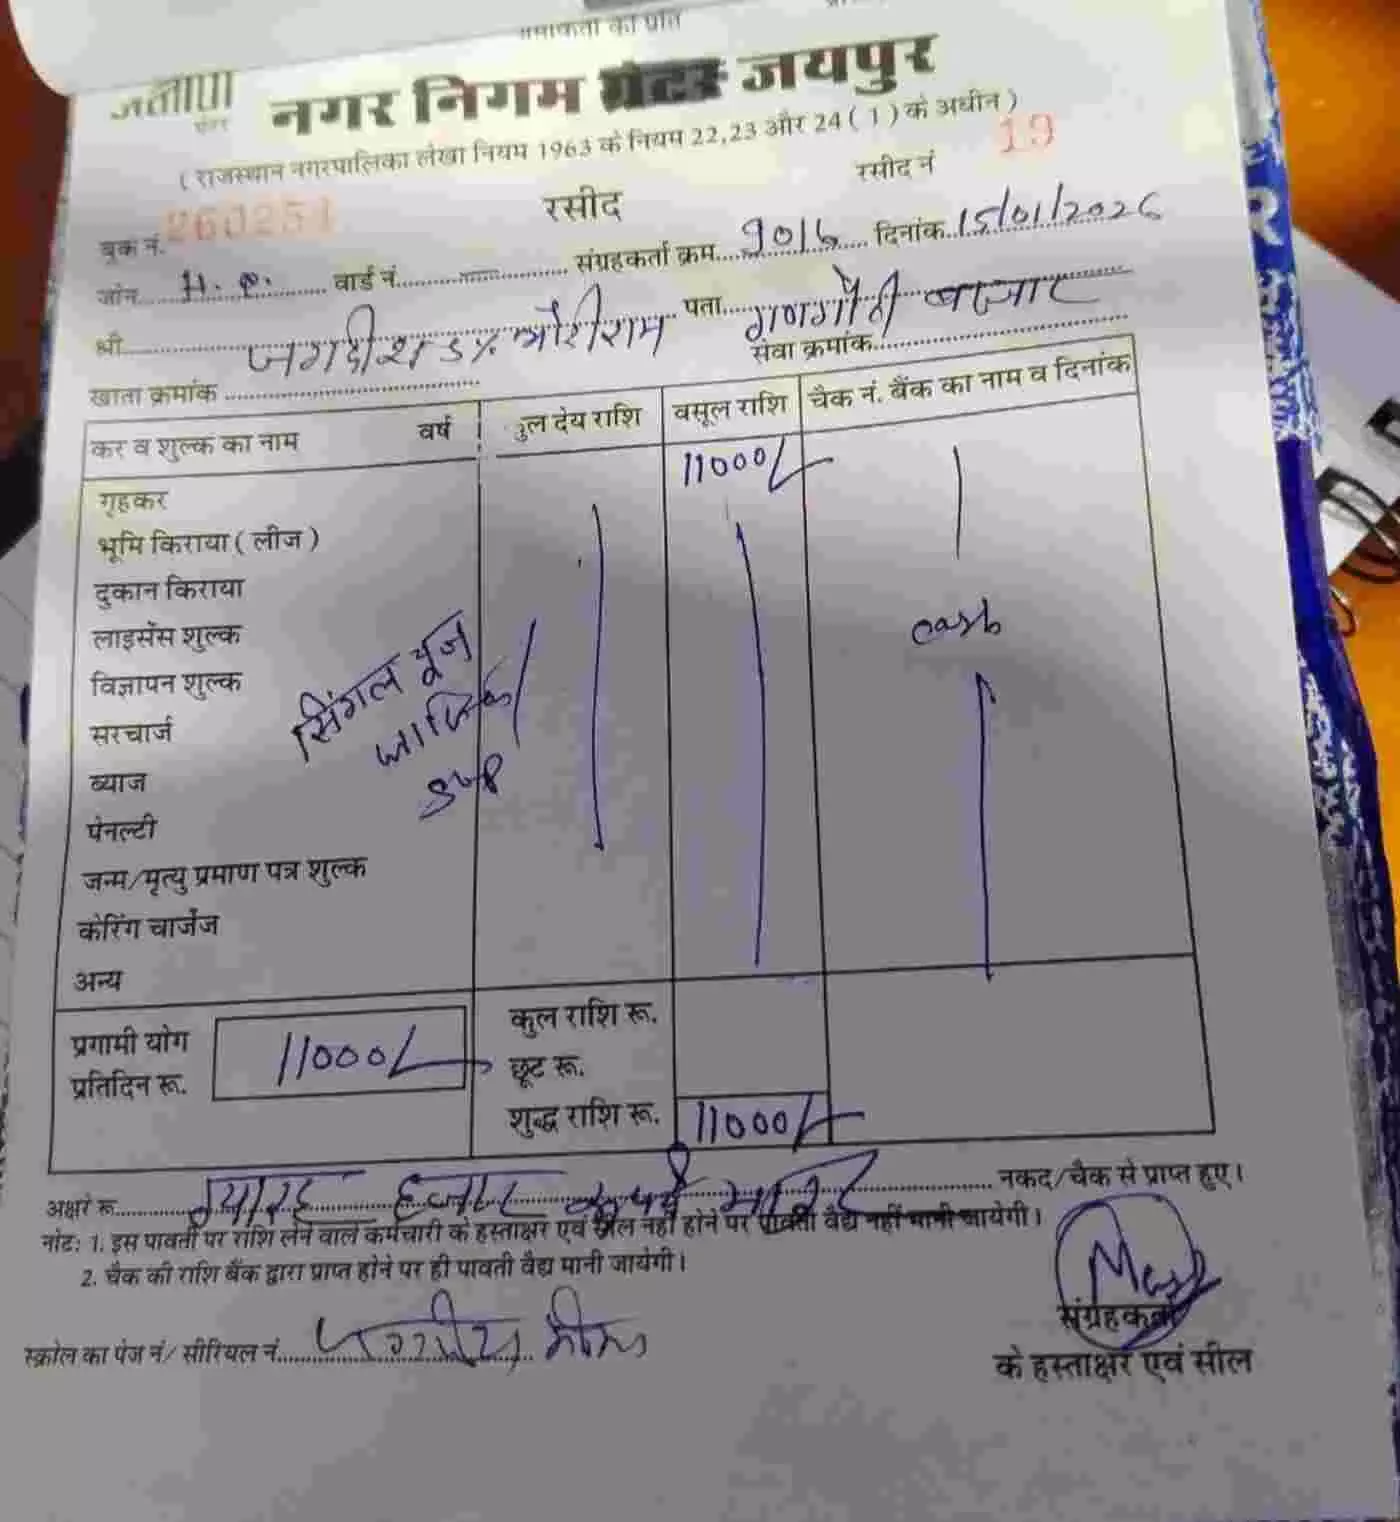 जमाकर्ता की प्रति
नगर निगम ग्रेटर जयपुर
( राजस्थान नगरपालिका लेखा नियम 1963 के नियम 22,23 और 24 ( 1 ) के अधीन )
बुक नं. 260251 रसीद रसीद नं 19
जोन H.P. वार्ड नं. संग्रहकर्ता क्रम. दिनांक 15/01/2026
श्री जगदीश S/o पता गणगौरी बाजार
खाता क्रमांक सेवा क्रमांक
कर व शुल्क का नाम वर्ष कुल देय राशि वसूल राशि चैक नं. बैंक का नाम व दिनांक
11000/-
गृहकर
भूमि किराया ( लीज )
दुकान किराया
लाइसेंस शुल्क cash
विज्ञापन शुल्क सिंगल यूज
सरचार्ज
ब्याज
पेनल्टी
जन्म/मृत्यु प्रमाण पत्र शुल्क
केरिंग चार्जेज
अन्य
प्रगामी योग 11000/- कुल राशि रू.
प्रतिदिन रू. छूट रू.
शुद्ध राशि रू. 11000/-
अक्षरे रू. ग्यारह हजार रूपये मात्र नकद/चैक से प्राप्त हुए।
नोट: 1. इस पावती पर राशि लेने वाले कर्मचारी के हस्ताक्षर एवं सील नहीं होने पर पावती वैद्य नहीं मानी जायेगी।
2. चैक की राशि बैंक द्वारा प्राप्त होने पर ही पावती वैद्य मानी जायेगी।
स्क्रोल का पेज नं/ सीरियल नं.
संग्रहकर्ता
के हस्ताक्षर एवं सील